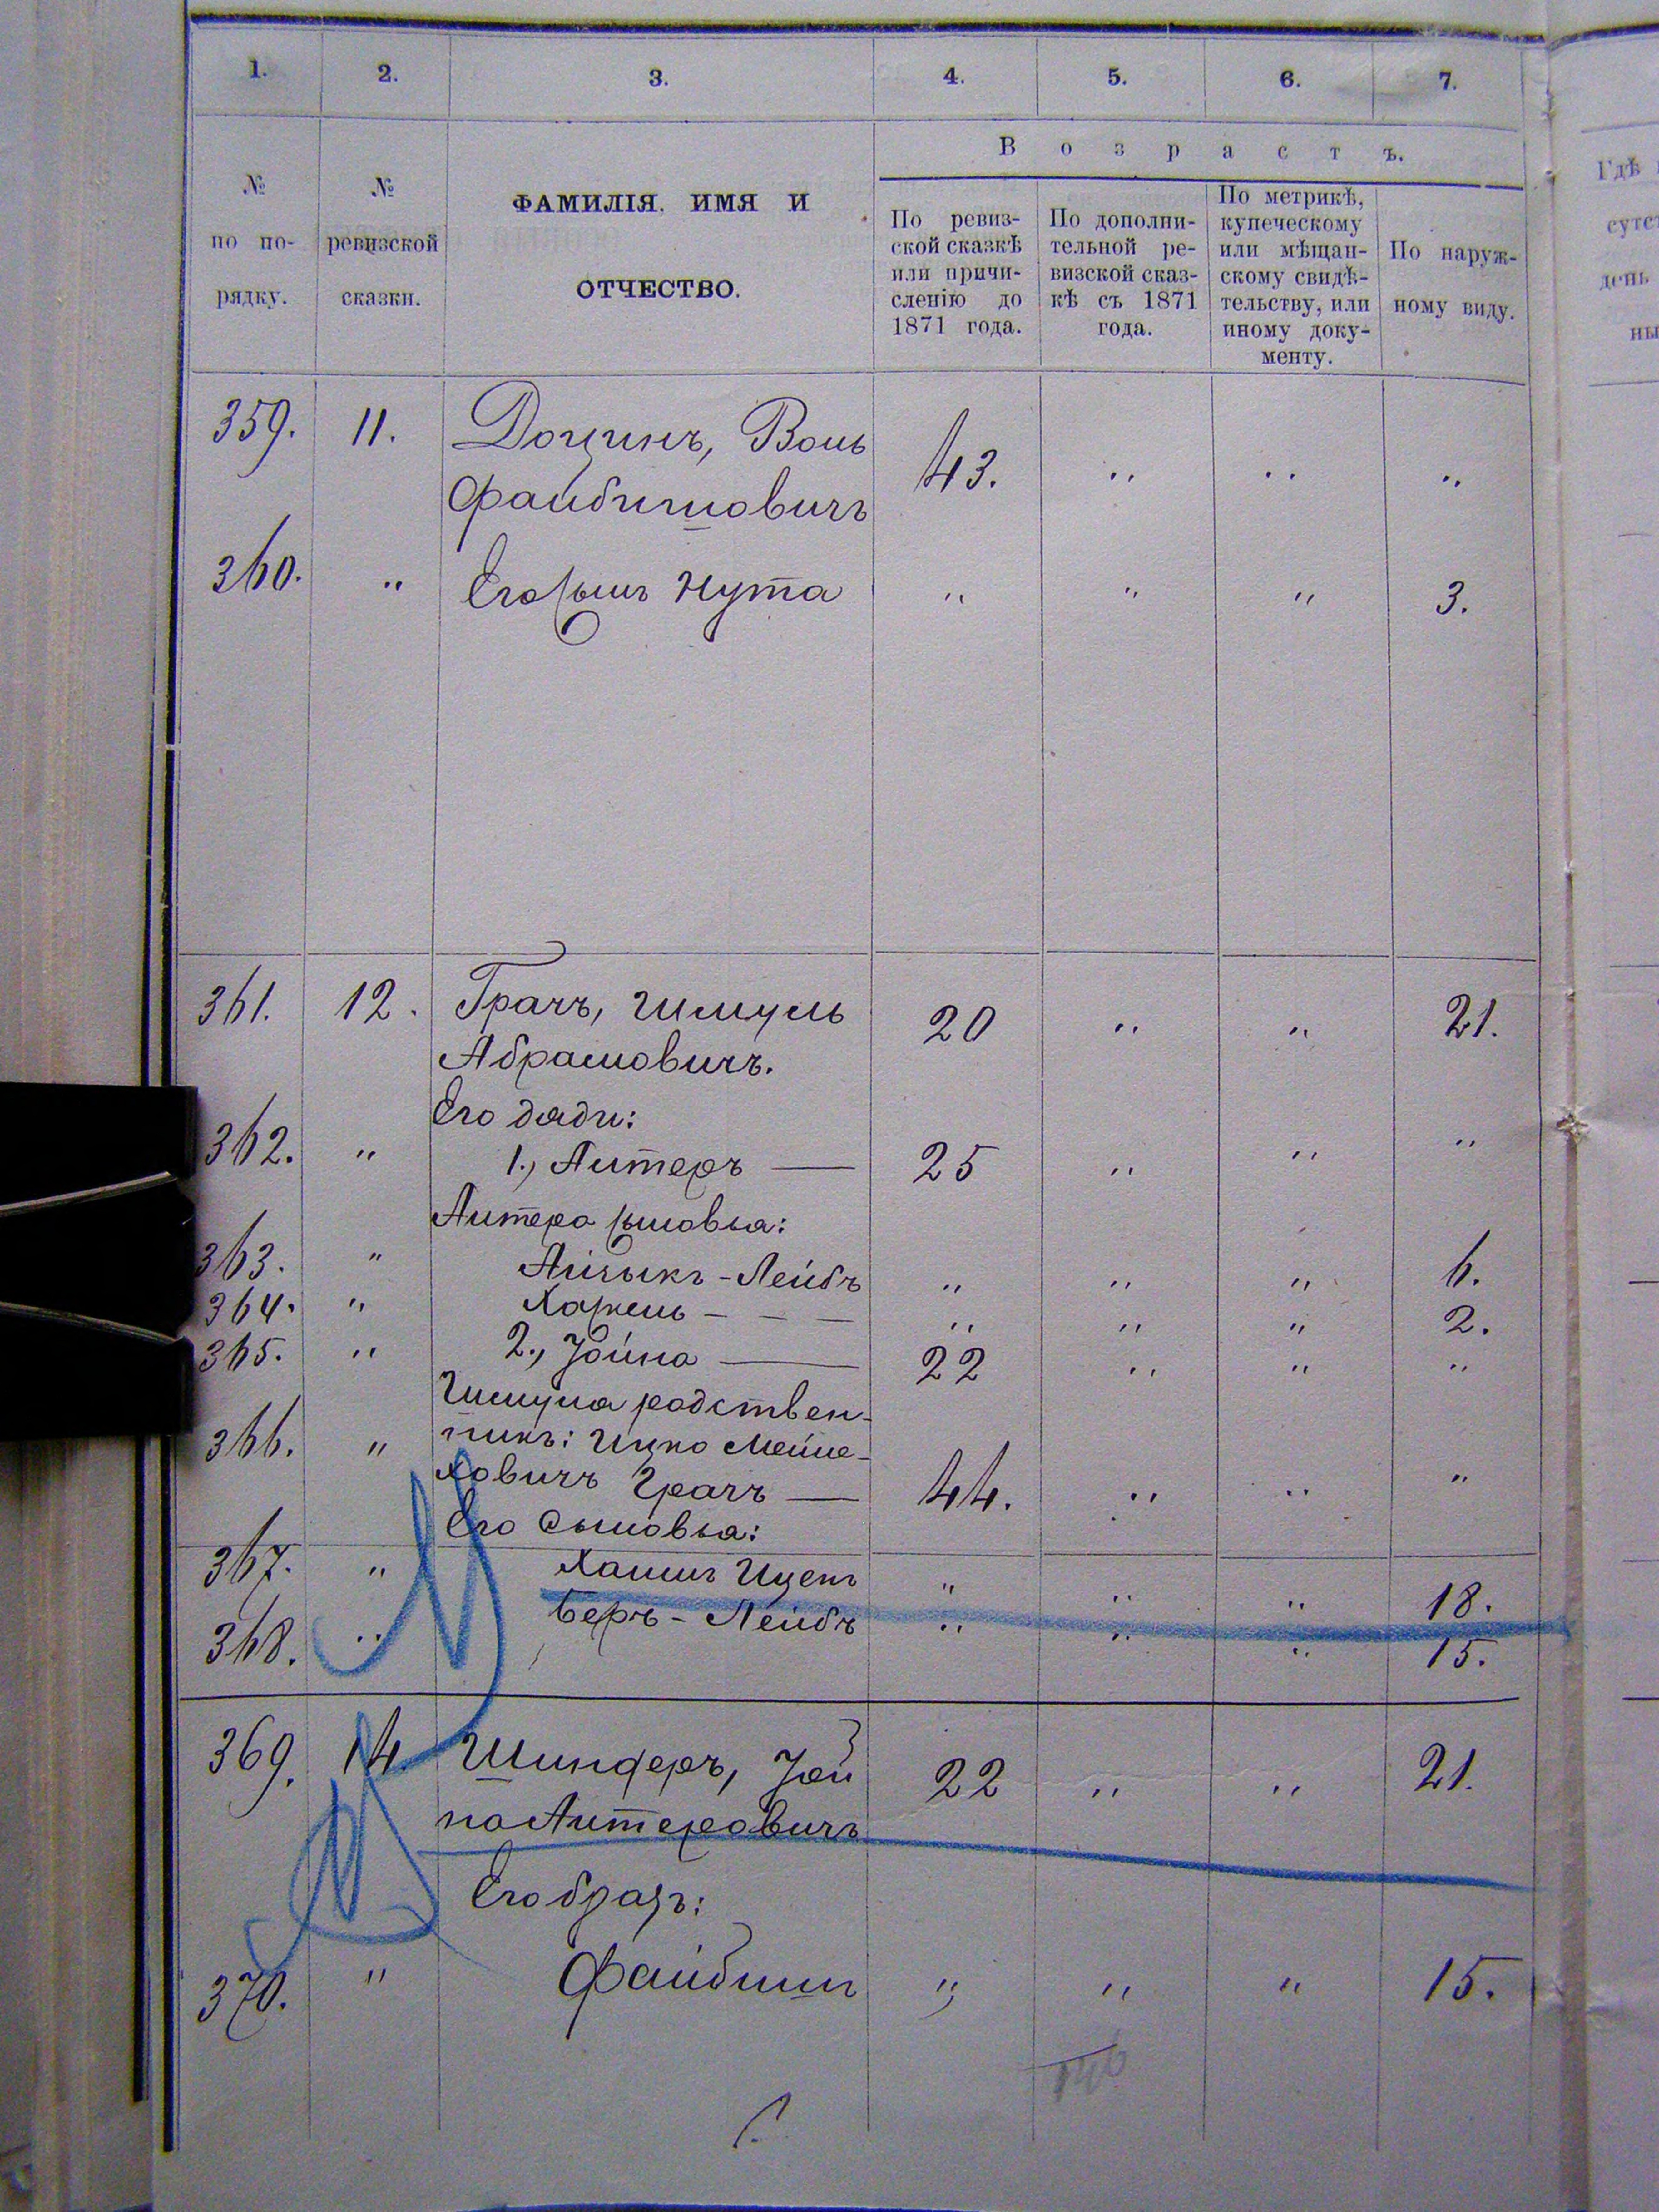 1. 2. 3. 4. 5. 6. 7.
№ по по- рядку.
№ ревизской сказки.
ФАМИЛІЯ, ИМЯ И
ОТЧЕСТВО.
В о з р а с т ъ.
По ревиз-
ской сказкѣ
или причи-
сленію до
1871 года.
По дополни-
тельной ре-
визской сказ-
кѣ съ 1871
года.
По метрикѣ,
купеческому
или мѣщан-
скому свидѣ-
тельству, или
иному доку-
менту.
По наруж-
ному виду.
Гдѣ
сутс
день
ны
359. 11. Доцинъ, Вольф
Файбишовичъ 43. " " "
360. " Его сынъ Нута " " " 3.
361. 12. Грачъ, Шмуль 20 " " 21.
Абрамовичъ.
Его дяди:
362. " 1., Литеръ — 25 " " "
Литера сыновья:
363. " Айзыкъ-Лейбъ " " " 6.
364. " Хацкель - - - " " " 2.
365. " 2., Іойна — 22 " " "
Шмуля родствен-
366. " никъ: Ицко Мейле-
ховичъ Грачъ — 44. " " "
Его сыновья:
367. " Хаимъ Ицекъ " " " 18.
368. " Беръ-Лейбъ " " " 15.
369. 14. Шиндеръ, Іой 22 " " 21.
на Литеровичъ
Его братъ:
370. " Файбишъ " " " 15.